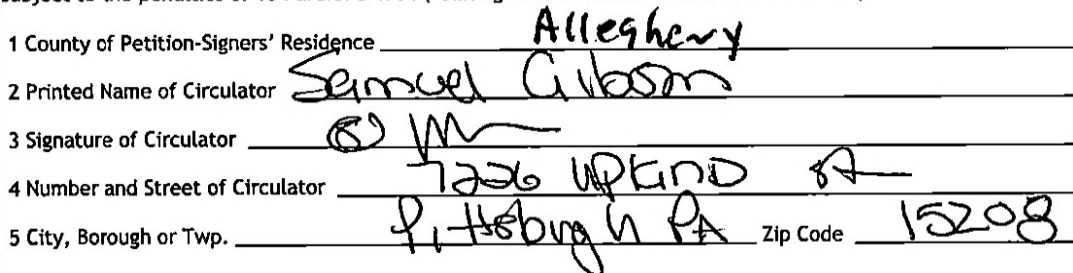 1 County of Petition-Signers' Residence Allegheny
2 Printed Name of Circulator Samuel Gibson
3 Signature of Circulator
4 Number and Street of Circulator 7226 UPLAND St
5 City, Borough or Twp. Pittsburgh PA Zip Code 15208